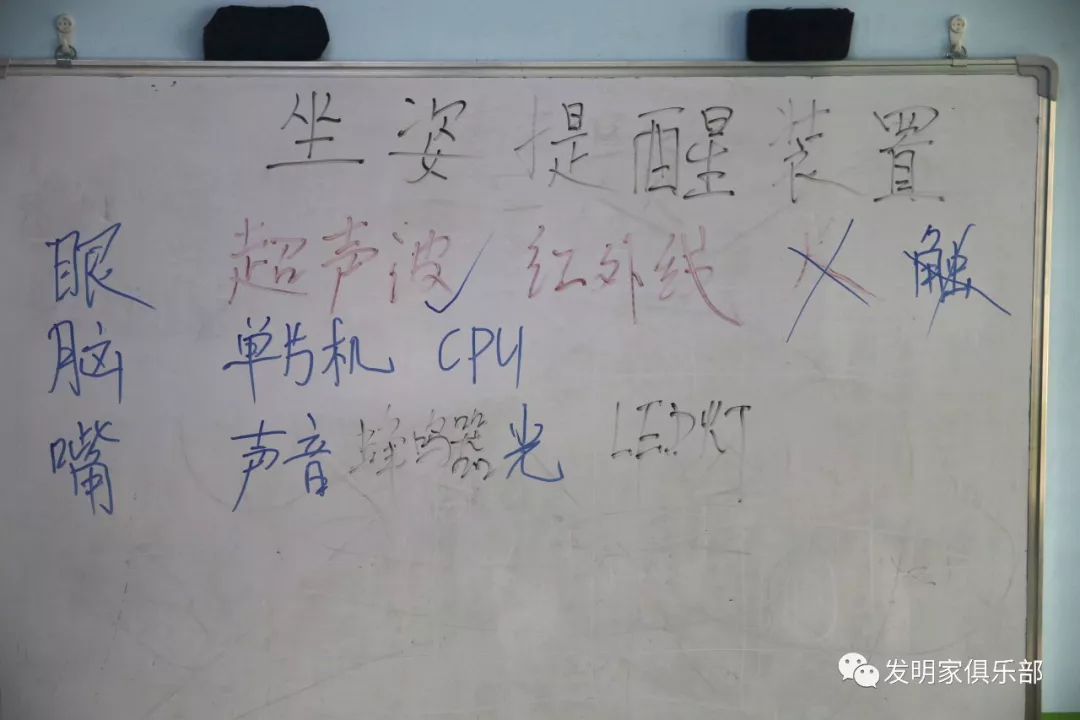 坐姿提醒装置
眼 超声波 红外线 触
脑 单片机 CPU
嘴 声音 蜂鸣器 光 LED灯
发明家俱乐部